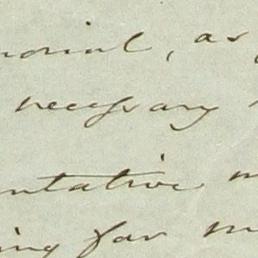 morial, as
necessary
ntative
ing for